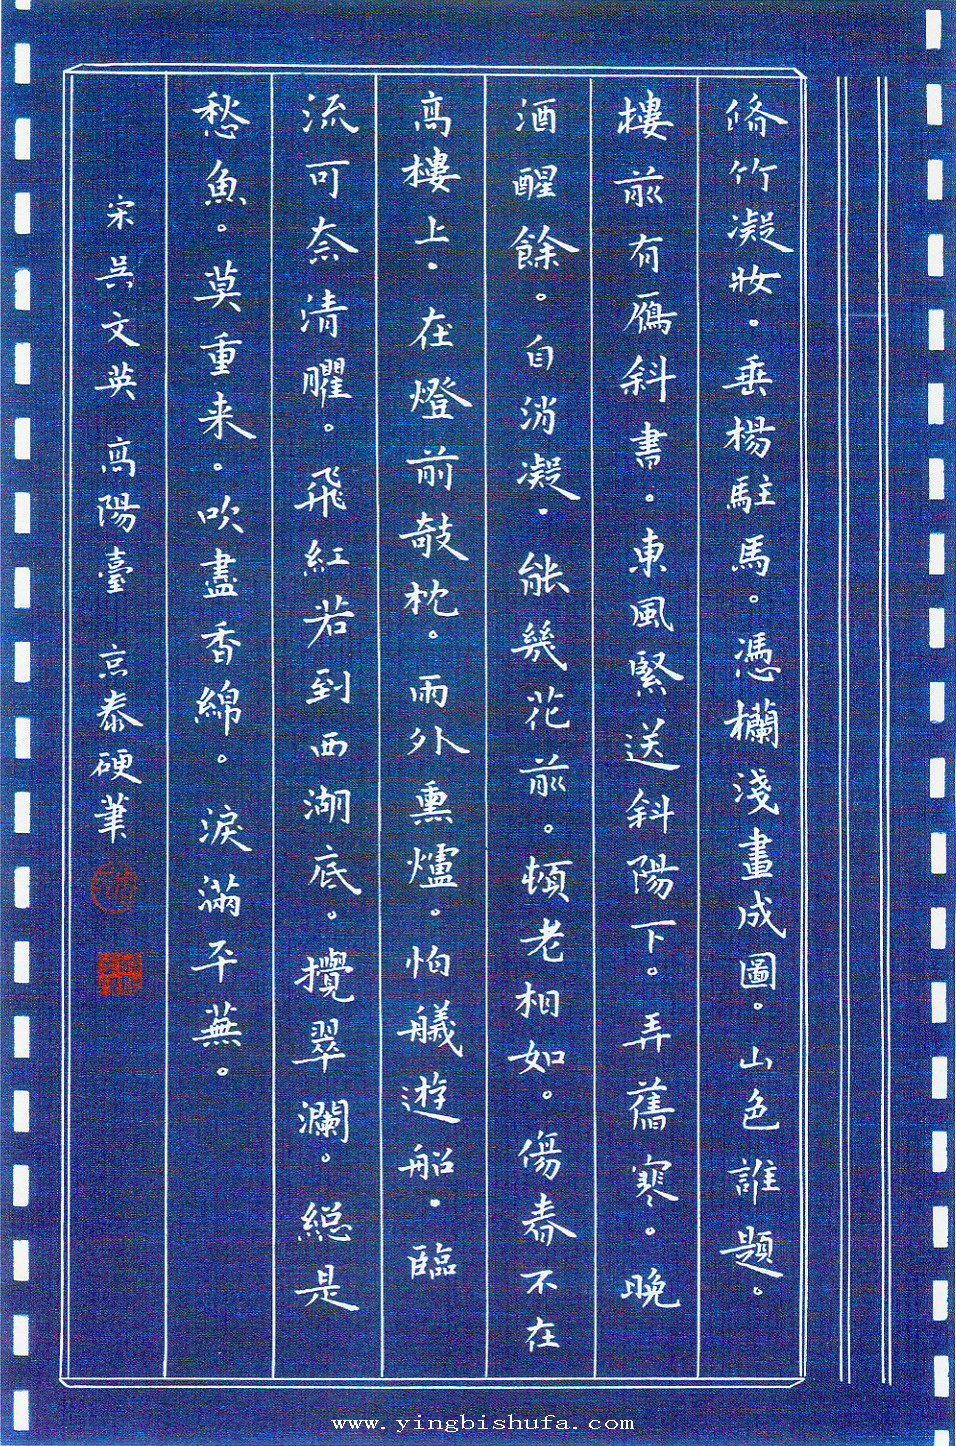 脩竹凝妝．垂楊駐馬。憑欄淺畫成圖。山色誰題。
樓前有雁斜書．東風緊送斜陽下。弄舊寒。晚
酒醒餘。自消凝．能幾花前。頓老相如。傷春不在
高樓上．在燈前敧枕。雨外熏爐。怕艤遊船．臨
流可奈清臞。飛紅若到西湖底。攪翠瀾。総是
愁魚。莫重来。吹盡香綿。淚滿平蕪。
宋吳文英 高陽臺 京泰硬筆
www.yingbishufa.com